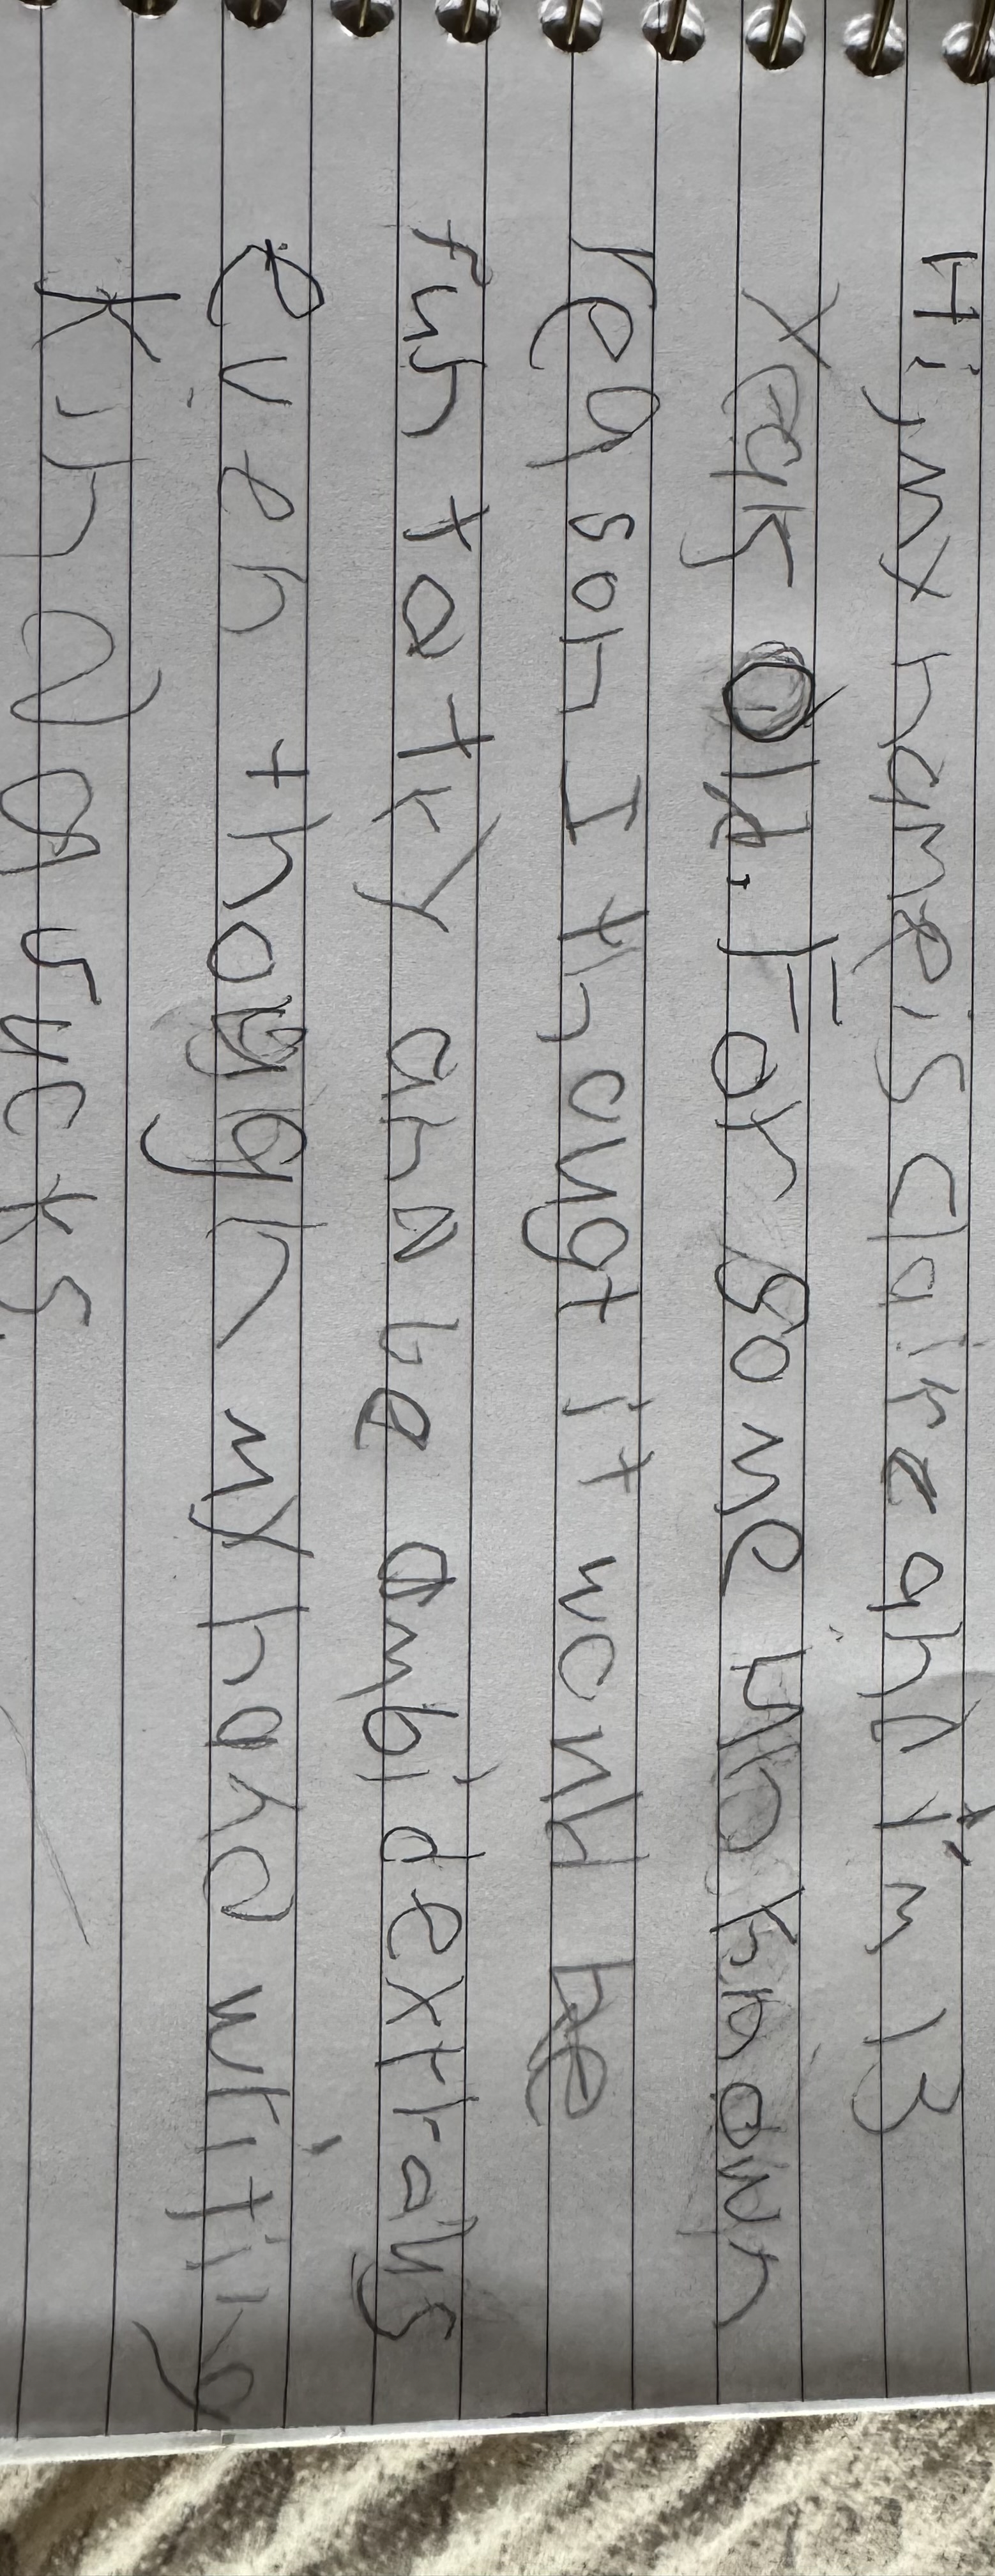 Hi, my name is Claire and I'm 13
years old. For some unknown
reason I thougt it would be
fun to try and be ambidextraus
even though my hand writing
kinda sucks.